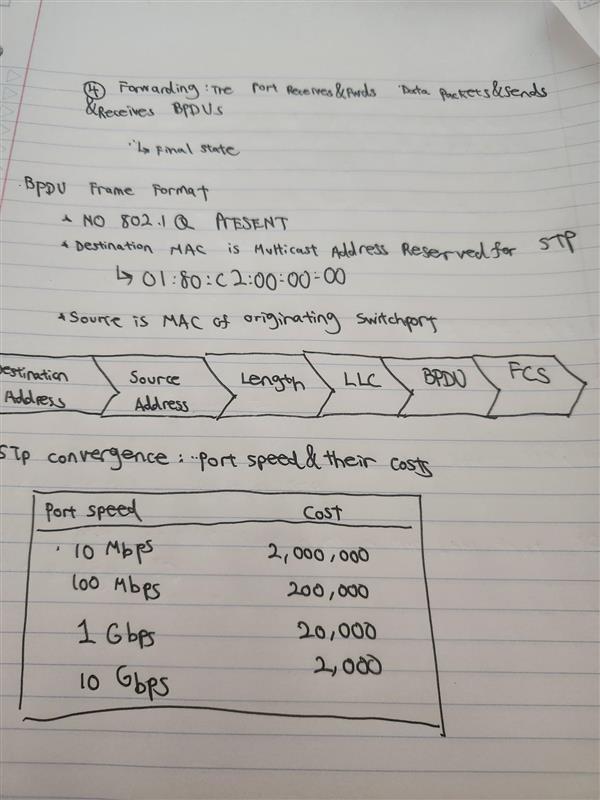 ④ Forwarding: The Port Receives & Fwds Data Packets & sends
& Receives BPDUs
↳ Final state
BPDU Frame Format
* NO 802.1 Q PRESENT
* Destination MAC is Multicast Address Reserved for STP
↳ 01:80:C2:00:00:00
* Source is MAC of originating Switchport
estination Address
Source Address
Length
LLC
BPDU
FCS
STP convergence: Port speed & their costs
Port speed Cost
10 Mbps 2,000,000
100 Mbps 200,000
1 Gbps 20,000
10 Gbps 2,000